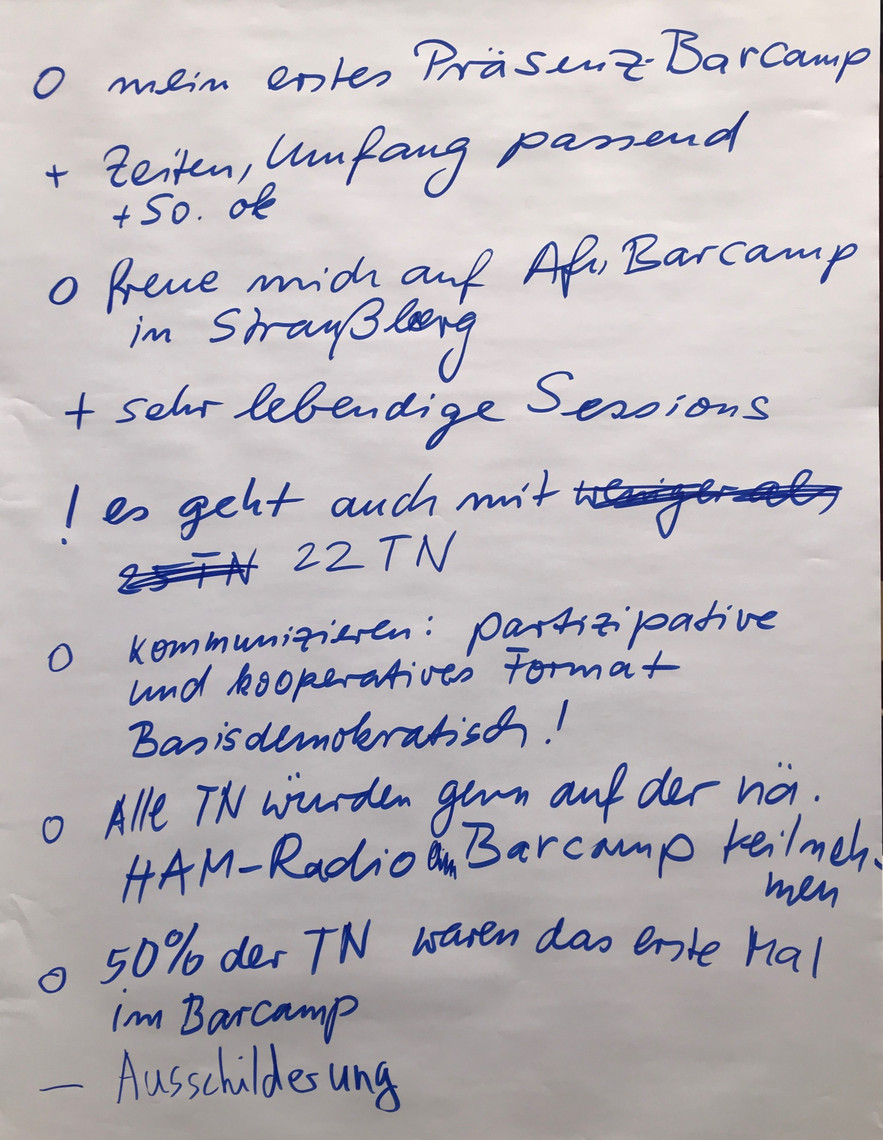 O mein erstes Präsenz-Barcamp
+ Zeiten, Umfang passend
+ So. ok
O freue mich auf Afu Barcamp
in Straußberg
+ sehr lebendige Sessions
! es geht auch mit ~~weniger als~~
~~25 TN~~ 22 TN
O kommunizieren: partizipative
und kooperatives Format
Basisdemokratisch!
O Alle TN würden gern auf der nä.
HAM-Radio Barcamp teilneh-
men
O 50% der TN waren das erste Mal
im Barcamp
— Ausschilderung